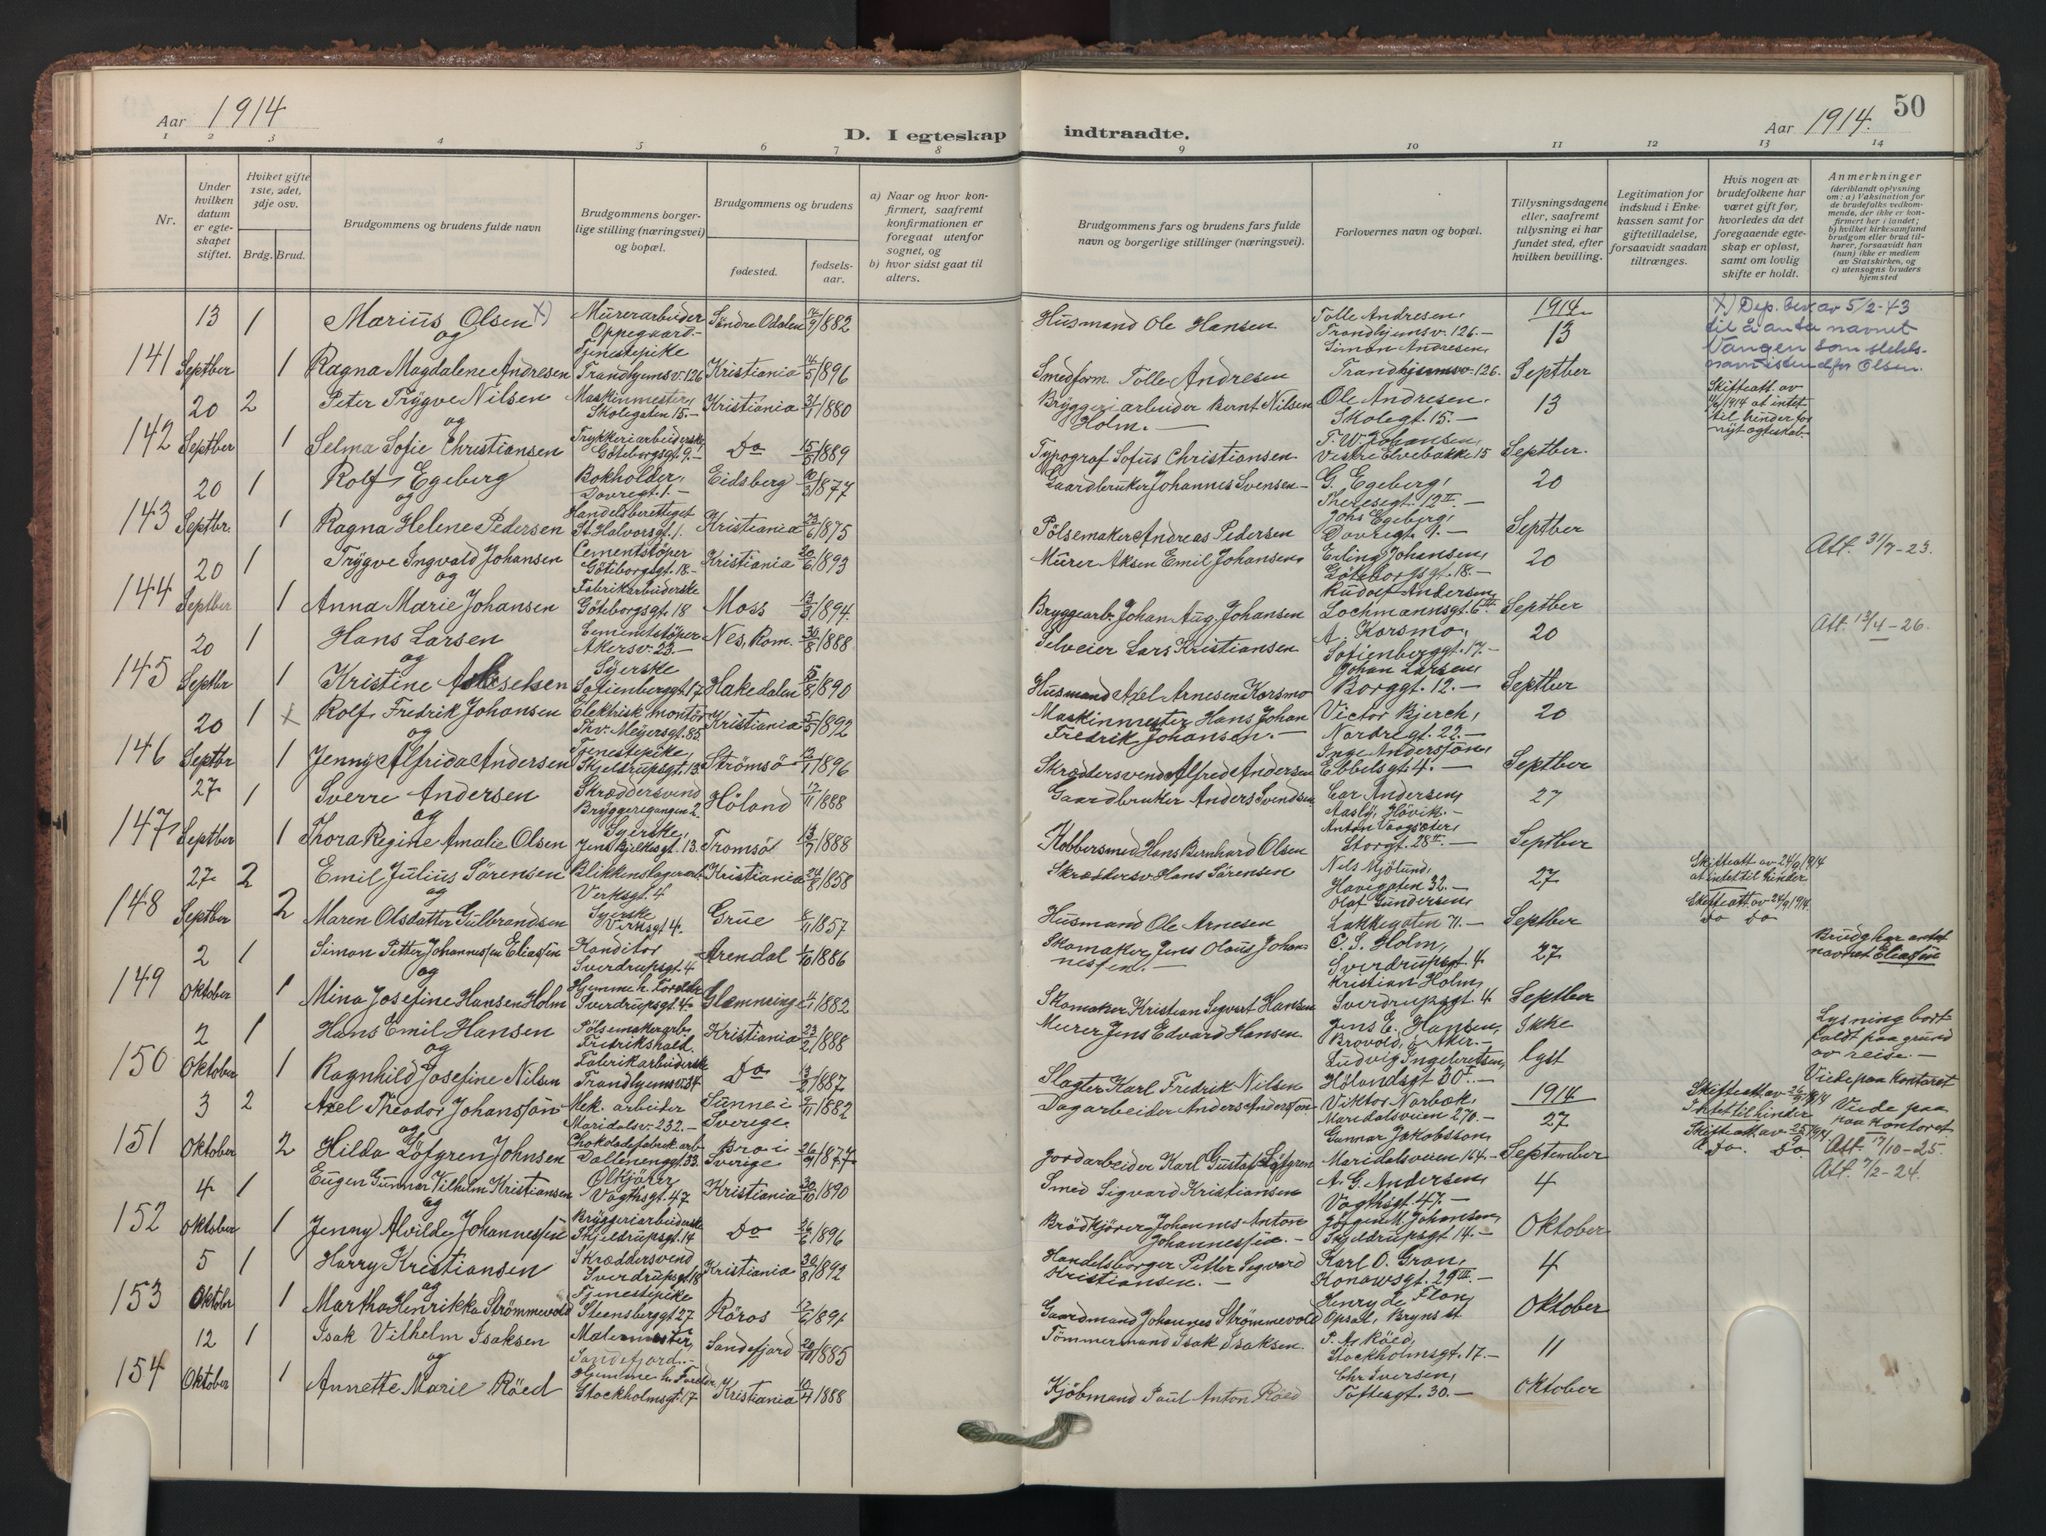 Aar 1914
D. I egteskap indtraadte.
Aar 1914.
50
1 2 3 4 5 6 7 8 9 10 11 12 13 14
Nr.
Under hvilken datum er egteskapet stiftet.
Hvilket gifte 1ste, 2det, 3dje osv.
Brdg. Brud.
Brudgommens og brudens fulde navn
Brudgommens borgerlige stilling (næringsvei) og bopæl.
Brudgommens og brudens
fødested.
fødselsaar.
a) Naar og hvor konfirmert, saafremt konfirmationen er foregaat utenfor sognet, og
b) hvor sidst gaat til alters.
Brudgommens fars og brudens fars fulde navn og borgerlige stillinger (næringsvei).
Forlovernes navn og bopæl.
Tillysningsdagene eller, saafremt tillysning ei har fundet sted, efter hvilken bevilling.
Legitimation for indskud i Enkekassen samt for giftetilladelse, forsaavidt saadan tiltrænges.
Hvis nogen av brudefolkene har været gift før, hvorledes da det foregaaende egteskap er opløst, samt om lovlig skifte er holdt.
Anmerkninger
(deriblandt oplysning om: a) Vaksination for de brudefolks vedkommende, der ikke er konfirmert her i landet; b) hvilket kirkesamfund brudgom eller brud tilhører, forsaavidt han (hun) ikke er medlem av Statskirken, og c) utensogns bruders hjemsted
141 13 Septber
1 Marius Olsen X) og Murerarbeider Oppegaard- Søndre Odalen 1882 Husmand Ole Hansen Tolle Andresen, Trondhjemsv. 126.- 1914 13
1 Ragna Magdalene Andresen Tjenestepike Trondhjemsv. 126 Kristiania 14/5 1896 Smedform. Tolle Andresen Simon Andresen, Trondhjemsv. 126. Septber
X) Dep. bev. av 5/2-43 til å anta navnet Vangen som slektsnavn istedenfor Olsen.
142 20 Septber
2 Peter Trygve Nilsen og Maskinmester, Skolegaten 15.- Kristiania 1880 Bryggeriarbeider Bernt Nilsen Holm.- Ole Andresen, Skolegt. 15.- 13
1 Selma Sofie Christiansen Trykkeriarbeiderske, Göteborgsgt. 9.- Do 15/8 1889 Typograf Sofus Christiansen F. W. Johansen, Vestre Elvebakke 15 Septber.
Skifteatt. av 1914 at intet til hinder for nyt egteskab.
143 20 Septbr.
1 Rolf Egeberg og Bokholder, Dovregt. 1.- Eidsberg 1877 Gaardbruker Johannes Svensen- G. Egeberg, Theresegt. 12 II.- 20
1 Ragna Helene Pedersen Handelsberettiget St. Halvorsgt. 1. Kristiania 23/6 1875 Pölsemaker Andreas Pedersen Johs Egeberg, Dovregt. 9.- Septber
144 20 Septber
1 Trygve Ingvald Johansen og Cementstöper Göteborgsgt. 18.- Kristiania 20/6 1893 Murer Aksen Emil Johansen, Erling Johansen, Göteborgsgt. 18.- 20
1 Anna Marie Johansen Fabrikarbeiderske Göteborgsgt. 18 Moss 13/3 1894. Bryggearb. Johan Aug. Johansen Rudolf Andersen, Lochmannsgt. 6 III. Septber
Att. 31/7-23.
145 20 Septbr
1 Hans Larsen og Cementstöper Akersv. 23.- Nes, Rom. 30/8 1888 Selveier Lars Kristiansen A. Korsmo, Sofienberggt. 17.- 20
1 Kristine Akselsen Syerske Sofienberggt. 17 Hakedalen 5/8 1890 Husmand Axel Arnesen Korsmo Johan Larsen, Borggt. 12.- Septber
Att. 13/4-26.
146 20 Septbr
1 X Rolf Fredrik Johansen og Elektrisk montör Thv. Meyersgt. 85. Kristiania 5/5 1892 Maskinmester Hans Johan Fredrik Johansen.- Victor Bjerch, Nordregt. 22.- 20
1 Jenny Alfrida Andersen Tjenestepike, Skjeldrupsgt. 13. Strömsö 13/1 1896 Skræddersvend Alfred Andersen Inge Anderssön, Ebbelsgt. 4.- Septber
147, 27 Septber
1 Sverre Andersen og Skræddersvend Bryggerigangen 2. Höland 17/11 1888 Gaardbruker Anders Svendsen Car Andersen, Aasly, Hövik.- 27
1 Thora Regine Amalie Olsen Syerske, Jens Bjelkesgt. 13. Tromsö 13/7 1888 Kobbersmed Hans Bernhard Olsen Anton Vaagsæter, Storgt. 28 II.- Septber
148 27 Septber
2 Emil Julius Sörensen og Blikkenslagerarb. Verksgt. 4 Kristiania 24/8 1858 Skræddersv. Hans Sörensen Nils Mjölund, Havegaten 32.- 27
2 Maren Olsdatter Gulbrandsen Syerske Verksgt. 4. Grue 1857 Husmand Ole Arnesen Olaf Gundersen, Lakkegaten 71.- Septber
Skifteatt av 24/9 1914 at intet til hinder
Skifteatt. av 24/9 1914. Do Do
149 2 Oktober
1 Simon Petter Johannessen Eliassen og Konditor Sverdrupsgt. 4 Arendal 1/10 1886 Skomaker Jens Olaus Johannessen.- C. S. Holm, Sverdrupsgt. 4 27
1 Mina Josefine Hansen Holm Hjemme h. Foreldre Sverdrupsgt. 4. Glemminge 1882 Skomaker Kristian Sigvart Hansen Kristian Holm, Sverdrupsgt. 4 Septber
Brudg har antat navnet Eliassen
150 2 Oktober
1 Hans Emil Hansen og Pölsemakerarb. Fredrikshald. Kristiania 23/2 1888 Murer Jens Edvard Hansen Jens E. Hansen, Brovold, Ö. Aker.- Ikke
1 Ragnhild Josefine Nilsen Fabrikarbeiderske Trondhjemsv. 34 Do 13/2 1887 Slagter Karl Fredrik Nilsen Ludvig Ingebretsen, Hölandsgt 30 I.- lyst
Lysning bortfaldt paa grund av reise.- Viede paa kontoret
151 3 Oktober
2 Axel Theodor Johanssön og Mek. arbeider Maridalsv. 232.- Sunne i Sverige. 9/11 1882 Dagarbeider Anders Anderssön Viktor Norbæk, Maridalsveien 270.- 1914 27
2 Hilda Löfgren Johnsen Chokoladefabrikarb Dælenenggt. 33. Bro i Sverige 26/9 1877 Jordarbeider Karl Gustaf Löfgren Gunnar Jakobsson, Maridalsveien 164.- September
Skifteatt. av 26/9 1914 Intet til hinder
Skifteatt. av 25/9 1914. Do. Do
Viede paa kontoret. Att. 17/10-25.
152 4 Oktober
1 Eugen Gunnar Vilhelm Kristiansen og Ölkjörer Vogtsgt. 47 Kristiania 30/10 1890 Smed Sigvard Kristiansen A. G. Andersen, Vogtsgt. 47.- 4
1 Jenny Alvilde Johannessen Bryggeriarbeiderske Skjeldrupsgt. 14 Do 26/6 1896 Brödkjörer Johannes Anton Johannessen.- Jörgen M. Johansen, Skjeldrupsgt. 14.- Oktober
Att. 7/2-24.
153 5 Oktbr
1 Harry Kristiansen og Skræddersvend Sverdrupsgt. 18 Kristiania 30/8 1892 Handelsborger Petter Sigvard Kristiansen.- Karl O. Gran, Konowsgt. 29 III.- 4
1 Martha Henrikka Strömmevold Tjenestepike Steensberggt. 27 Röros 12/6 1891 Gaardmand Johannes Strömmevold Henry de Flon, Opsal, Bryns st. Oktober
154 12 Oktober
1 Isak Vilhelm Isaksen og Malermester, Sandefjord.- Sandefjord 20/10 1885 Tömmermand Isak Isaksen. P. A. Röed, Stockholmsgt. 17.- 11
1 Annette Marie Röed Hjemme h. Foreldre, Stockholmsgt. 17 Kristiania 10/4 1888 Kjöbmand Paul Anton Röed Chr Iversen, Toftesgt. 30.- Oktober